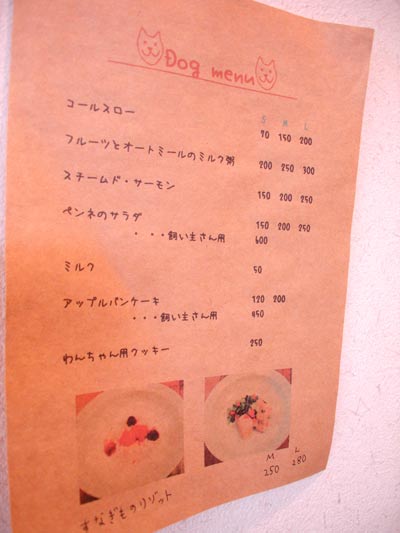 Dog menu
S M L
コールスロー 70 150 200
フルーツとオートミールのミルク粥 200 250 300
スチームド・サーモン 150 200 250
ペンネのサラダ 150 200 250
・・・飼い主さん用 600
ミルク 50
アップルパンケーキ 120 200
・・・飼い主さん用 450
わんちゃん用クッキー 250
M L
250 280
すなぎものリゾット